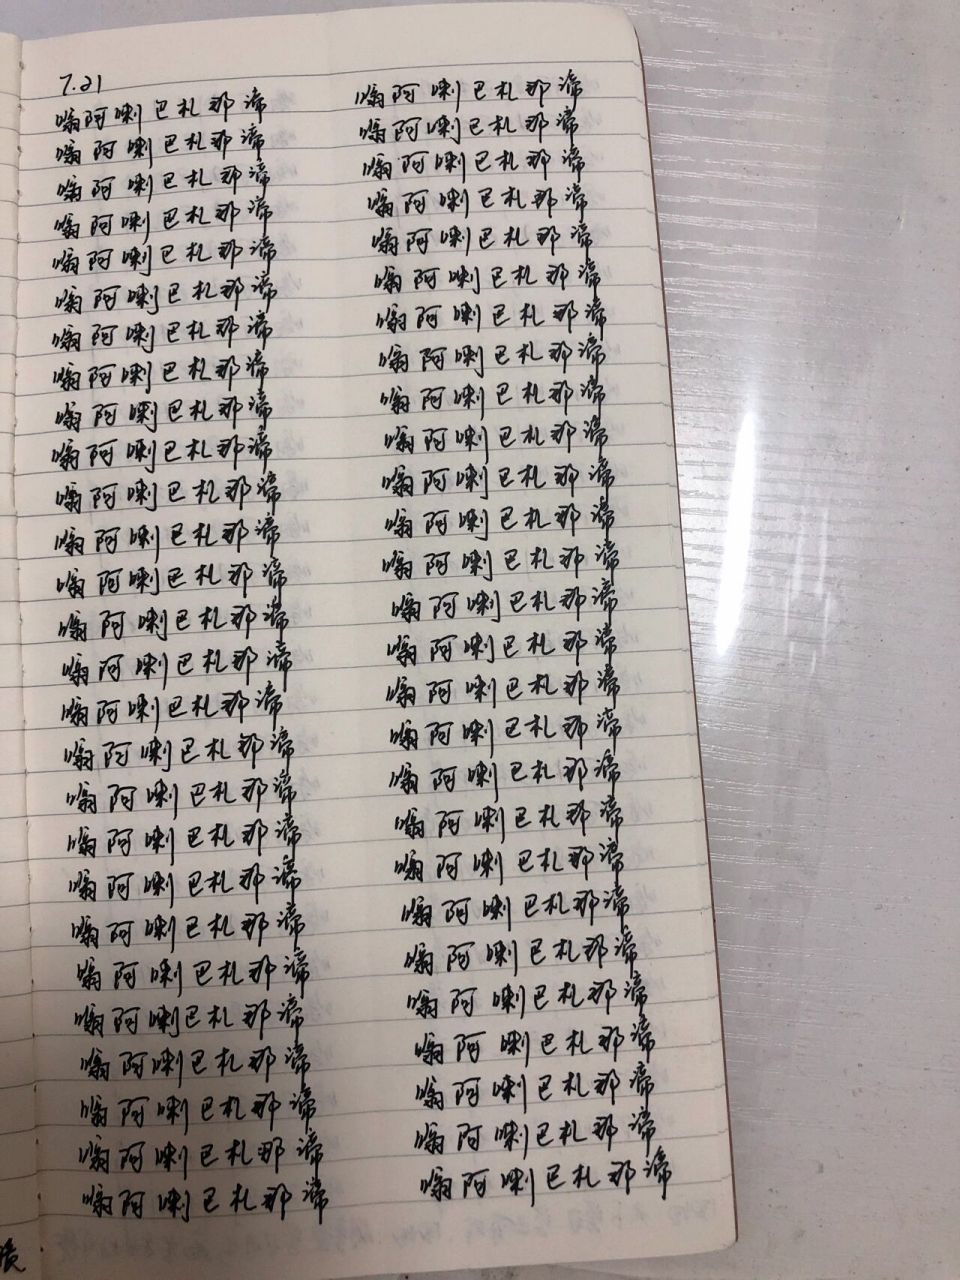 7.21
嗡阿喇巴札那谛
嗡阿喇巴札那谛
嗡阿喇巴札那谛
嗡阿喇巴札那谛
嗡阿喇巴札那谛
嗡阿喇巴札那谛
嗡阿喇巴札那谛
嗡阿喇巴札那谛
嗡阿喇巴札那谛
嗡阿喇巴札那谛
嗡阿喇巴札那谛
嗡阿喇巴札那谛
嗡阿喇巴札那谛
嗡阿喇巴札那谛
嗡阿喇巴札那谛
嗡阿喇巴札那谛
嗡阿喇巴札那谛
嗡阿喇巴札那谛
嗡阿喇巴札那谛
嗡阿喇巴札那谛
嗡阿喇巴札那谛
嗡阿喇巴札那谛
嗡阿喇巴札那谛
嗡阿喇巴札那谛
嗡阿喇巴札那谛
嗡阿喇巴札那谛
嗡阿喇巴札那谛
嗡阿喇巴札那谛
嗡阿喇巴札那谛
嗡阿喇巴札那谛
嗡阿喇巴札那谛
嗡阿喇巴札那谛
嗡阿喇巴札那谛
嗡阿喇巴札那谛
嗡阿喇巴札那谛
嗡阿喇巴札那谛
嗡阿喇巴札那谛
嗡阿喇巴札那谛
嗡阿喇巴札那谛
嗡阿喇巴札那谛
嗡阿喇巴札那谛
嗡阿喇巴札那谛
嗡阿喇巴札那谛
嗡阿喇巴札那谛
嗡阿喇巴札那谛
嗡阿喇巴札那谛
嗡阿喇巴札那谛
嗡阿喇巴札那谛
嗡阿喇巴札那谛
嗡阿喇巴札那谛
嗡阿喇巴札那谛
嗡阿喇巴札那谛
嗡阿喇巴札那谛
嗡阿喇巴札那谛